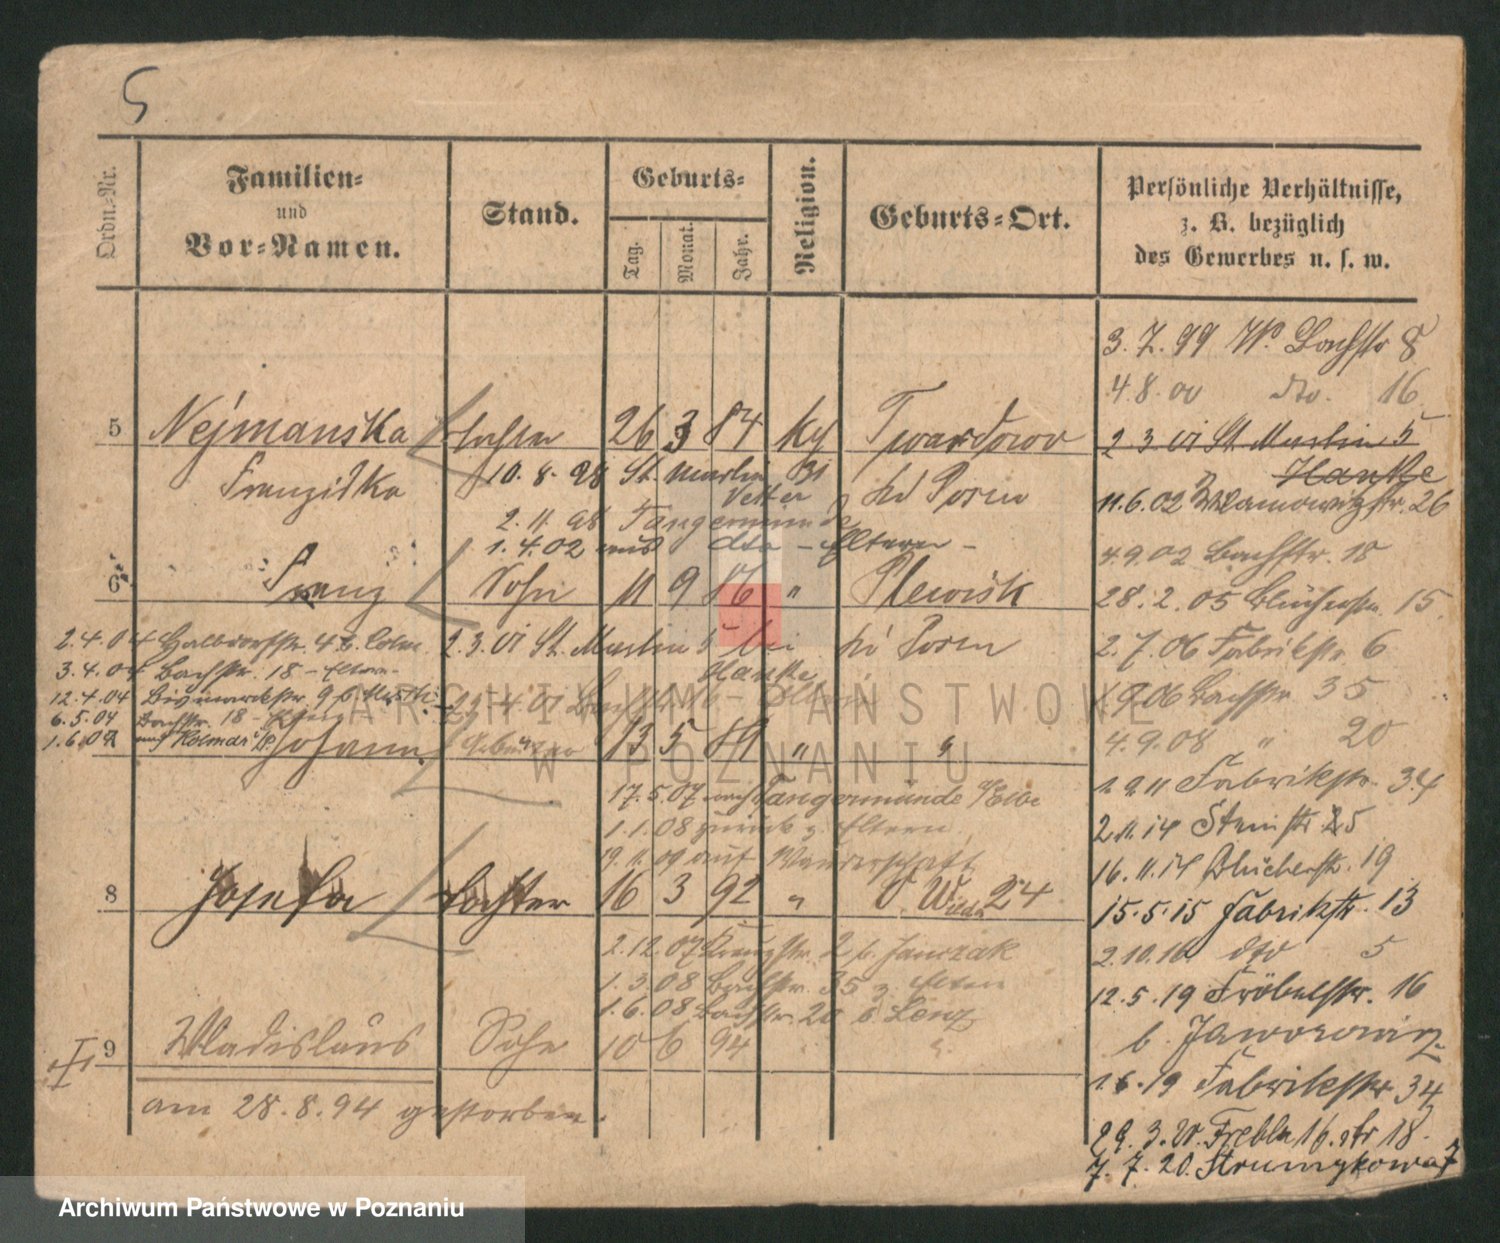 5
Ordn.-Nr.
Familien-
und
Vor-Namen.
Stand.
Geburts-
Tag.
Monat.
Jahr.
Religion.
Geburts-Ort.
Persönliche Verhältnisse,
z. B. bezüglich
des Gewerbes u. s. w.
3. 7. 99 W. Bachstr 8
4. 8. 00 dto. 16
5 Nejmanska Tochter 26 3 84 Twardowo
2 3. 01 St. Martin 5
Hanske
Franziska 10. 8. 98 St. Martin
Vetter
kr Posen
11. 6. 02 26
2. 11. 98 Tangermünde
1. 4. 02 aus dto - Eltern -
4. 9. 02 Bachstr. 18
6 Franz Sohn 11 9 86 " Plewisk
28. 2. 05 Blücherstr. 15
2. 4. 04 Halbdorfstr. 4
2. 3. 01 St. Martin 5 bei
Hanske
kr Posen
2. 7. 06 Fabrikstr 6
3. 4. 04 Bachstr. 18 - Eltern -
12. 4. 04 Bismarckstr. 9
1 9. 06 Bachstr 35
6. 5. 04 Bachstr. 18 - Eltern
1. 6. 07 auf Kolmar i/P.
Johann 13 5 89 " "
4. 9. 08 " 20
17. 5. 07 nach Tangermünde a/Elbe
1. 9. 11 Fabrikstr. 34
1. 1. 08 zurück z. Eltern
2. 11. 14 Steinstr 25
19. 11. 09 auf Wanderschaft
16. 11. 14 Blücherstr. 19
8 Josefa Tochter 16 3 92 " 24
15. 5. 15 Fabrikstr. 13
2. 12. 07 Kreuzstr. 2 b. Janczak
2. 10. 16 dto 5
1. 3. 08 Bachstr. 35 z. Eltern
12. 5. 19 Fröbelstr. 16
1. 6. 08 Bachstr. 20 b Lenz
b. Jaworowicz
9 Wladislaus Sohn 10 6 94 "
19 Fabrikstr 34
am 28. 8. 94 gestorben.
29. 3. 20. 18
7. 7. 20. Strumykowa 7
ARCHIWUM PAŃSTWOWE
W POZNANIU
Archiwum Państwowe w Poznaniu